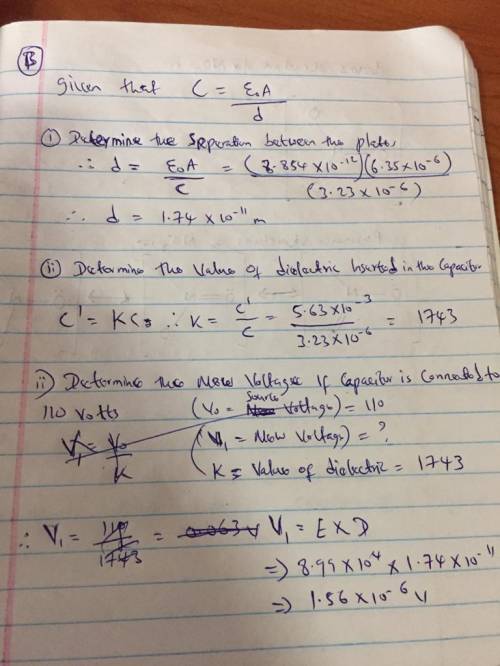 B
Given that C = ε₀A / d
(i) Determine the Separation between the plates
∴ d = ε₀A / C = (8.854 × 10⁻¹²)(6.35 × 10⁻⁶) / (3.23 × 10⁻⁶)
∴ d = 1.74 × 10⁻¹¹ m
(ii) Determine the Value of dielectric Inserted in the Capacitor
C' = KC₀ ∴ K = C' / C = 5.63 × 10⁻³ / 3.23 × 10⁻⁶ = 1743
ii) Determine the New Voltage If Capacitor is Connected to
110 Votts (V₀ = Source Voltage) = 110
V₁ = V₀ / K (V₁ = New Voltage) = ?
K = Value of dielectric = 1743
∴ V₁ = 110 / 1743 = 0.063 V V₁ = E × D
⇒ 8.99 × 10⁴ × 1.74 × 10⁻¹¹
⇒ 1.56 × 10⁻⁶ V